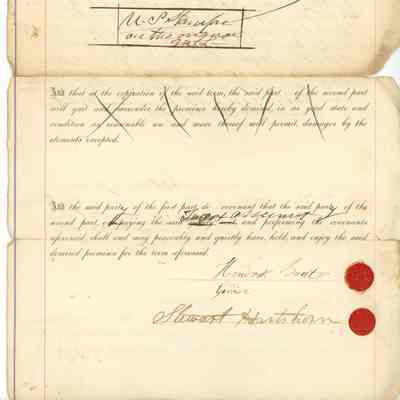 U.S. Stamps
on the original
And that at the expiration of the said term, the said part of the second part
will quit and surrender the premises hereby demised, in as good state and
condition as reasonable use and wear thereof will permit, damages by the
elements excepted.
And the said party of the first part do covenant that the said party of the
second part, on paying the said and performing the covenants
aforesaid, shall and may peaceably and quietly have, hold, and enjoy the said
demised premises for the term aforesaid.
Stewart Hartshorn